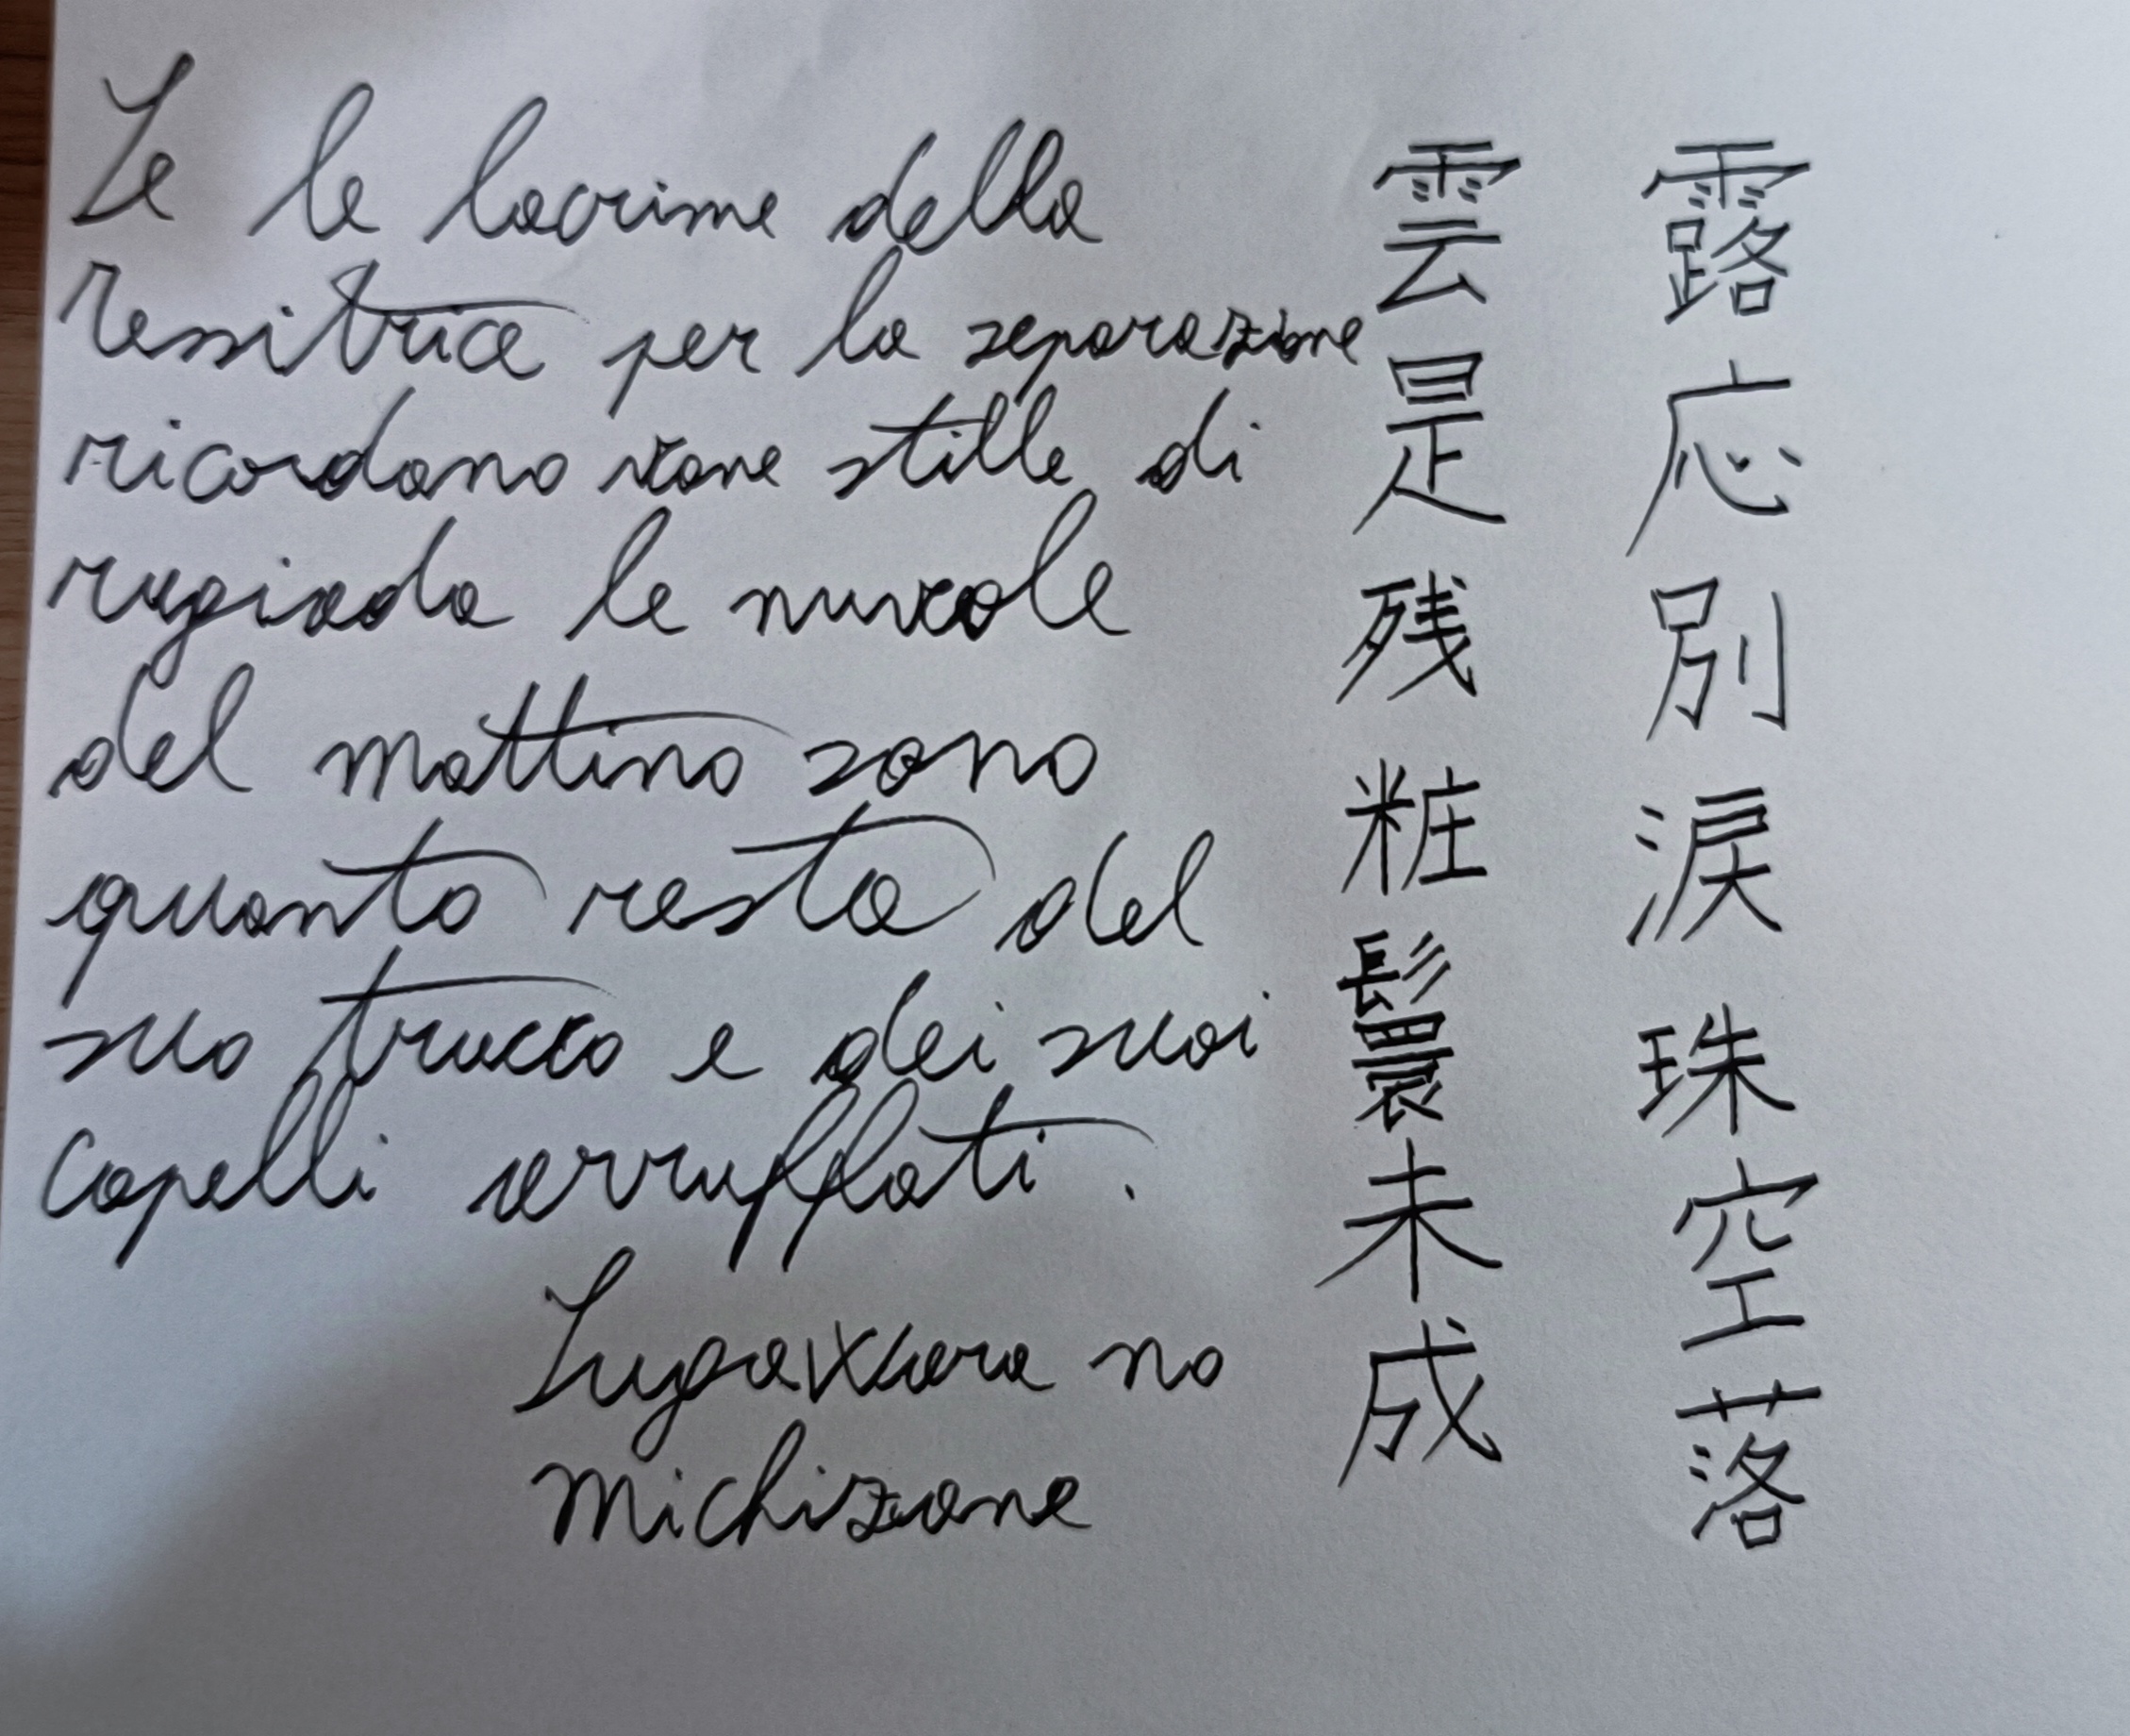 Se le lacrime della
Tessitrice per la separazione
ricordano vane stille di
rugiada le nuvole
del mattino sono
quanto resta del
suo trucco e dei suoi
capelli arruffati.
Sugawara no
Michizane
露応別涙珠空落
雲是残粧鬟未成